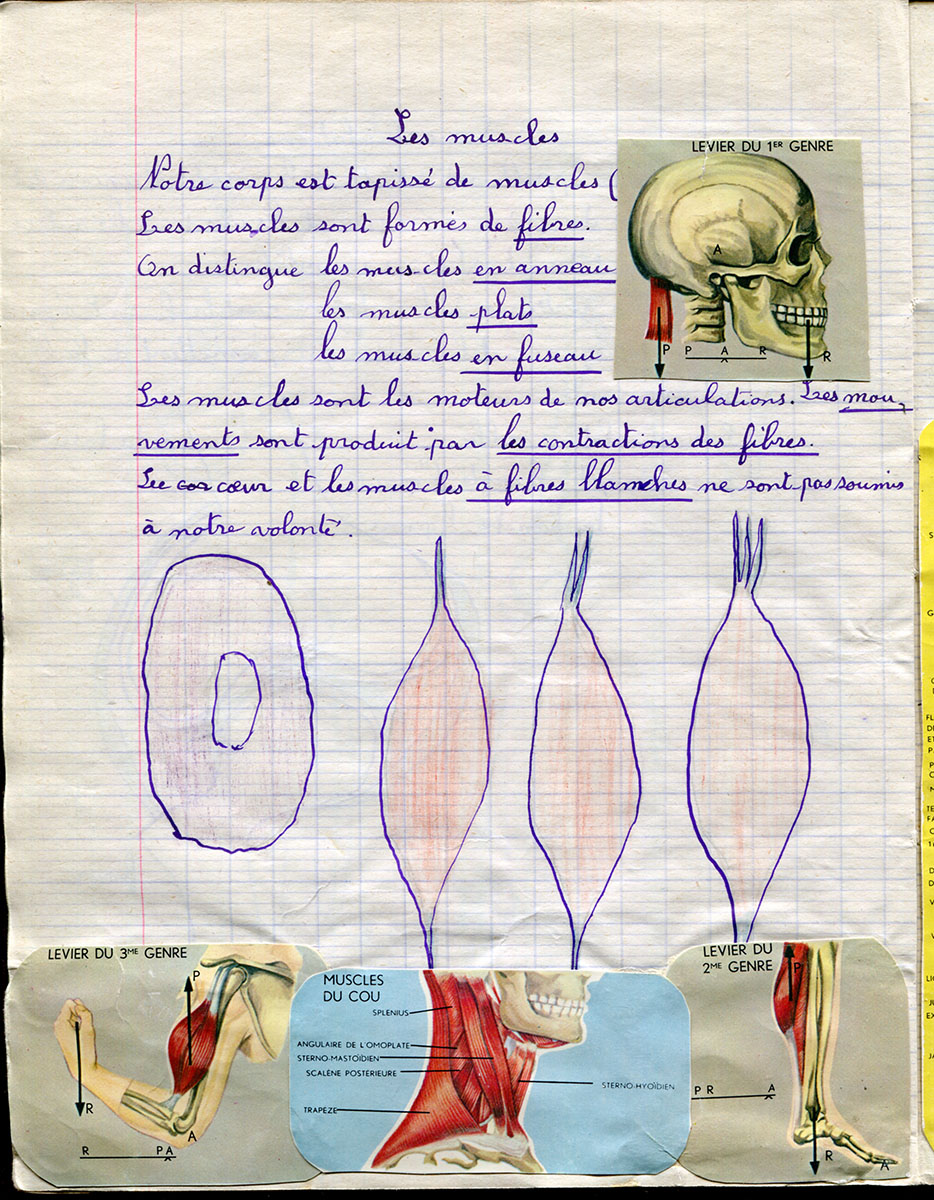 Les muscles
Notre corps est tapissé de muscles (
Les muscles sont formés de fibres.
On distingue les muscles en anneau
les muscles plats
les muscles en fuseau
Les muscles sont les moteurs de nos articulations. Les mou-
vements sont produit par les contractions des fibres.
Le cœur et les muscles à fibres blanches ne sont pas soumis
à notre volonté.
LEVIER DU 1ER GENRE
A
P
P A R
R
LEVIER DU 3ME GENRE
P
R
A
R P A
MUSCLES
DU COU
SPLENIUS
ANGULAIRE DE L'OMOPLATE
STERNO-MASTOÏDIEN
SCALÈNE POSTÉRIEURE
STERNO-HYOÏDIEN
TRAPEZE
LEVIER DU
2ME GENRE
P
P R A
R
A